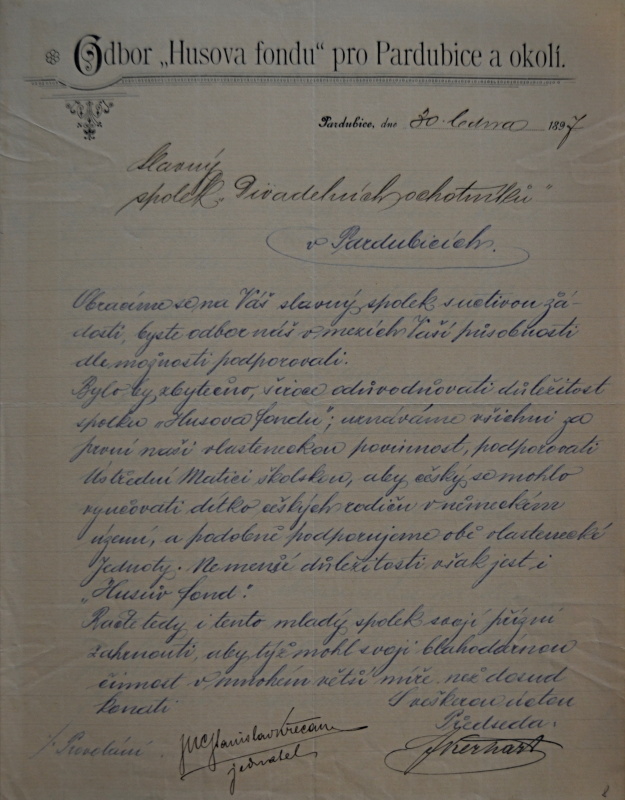 Odbor „Husova fondu“ pro Pardubice a okolí.
Pardubice, dne 30. ledna 1897
Slavný
spolek „Divadelních ochotníků“
v Pardubicích.
Obracíme se na Váš slavný spolek s uctivou žá-
dostí, byste odbor náš v mezích Vaší působnosti
dle možnosti podporovali.
Bylo by zbytečno, široce odůvodňovati důležitost
spolku „Husova fondu“; uznáváme všichni za
první naši vlasteneckou povinnost, podporovati
Ústřední Matici školskou, aby český se mohlo
vyučovati dítko českých rodičů v německém
území, a podobně podporujeme obě vlastenecké
Jednoty. Ne menší důležitosti však jest i
„Husův fond“.
Račte tedy i tento mladý spolek svojí přízní
zahrnouti, aby týž mohl svoji blahodárnou
činnost v mnohem větší míře, než dosud
konati
S veškerou úctou
Předseda:
JUC Stanislav
jednatel